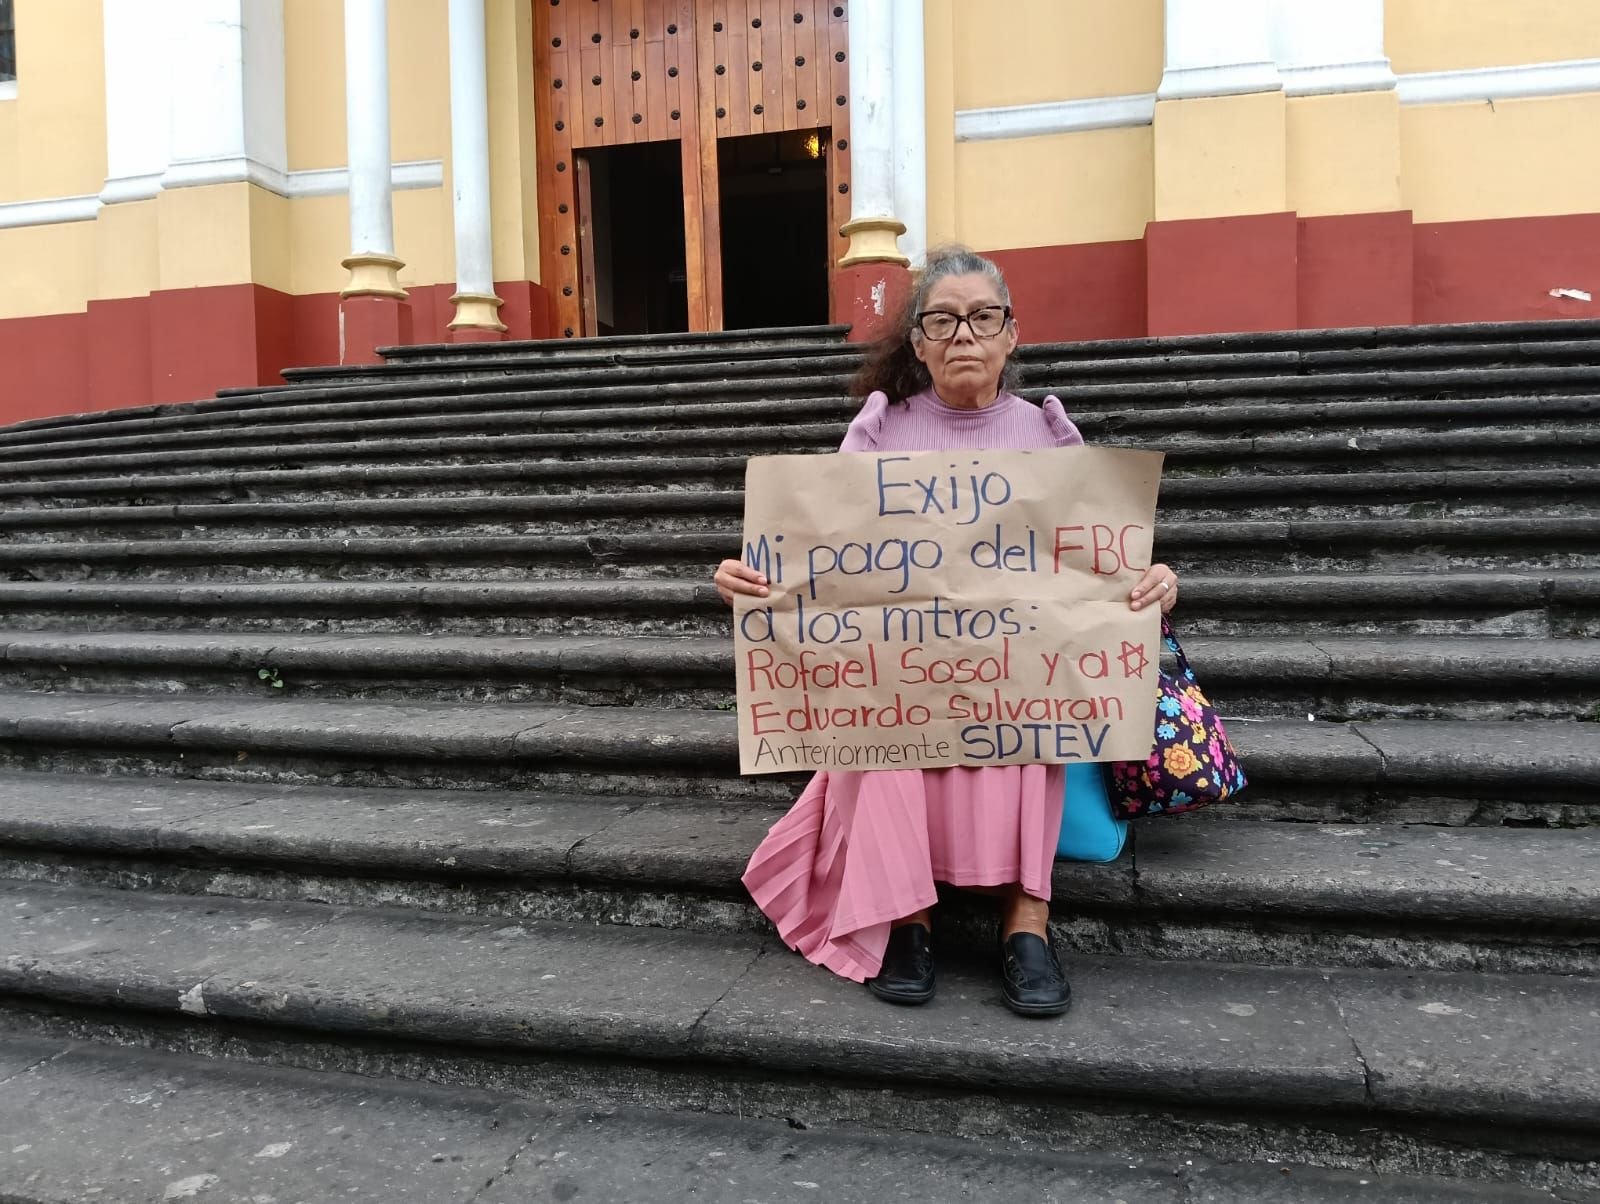 Exijo
Mi pago del FBC
a los mtros:
Rafael Sosol y a
Eduardo Sulvaran
Anteriormente SDTEV